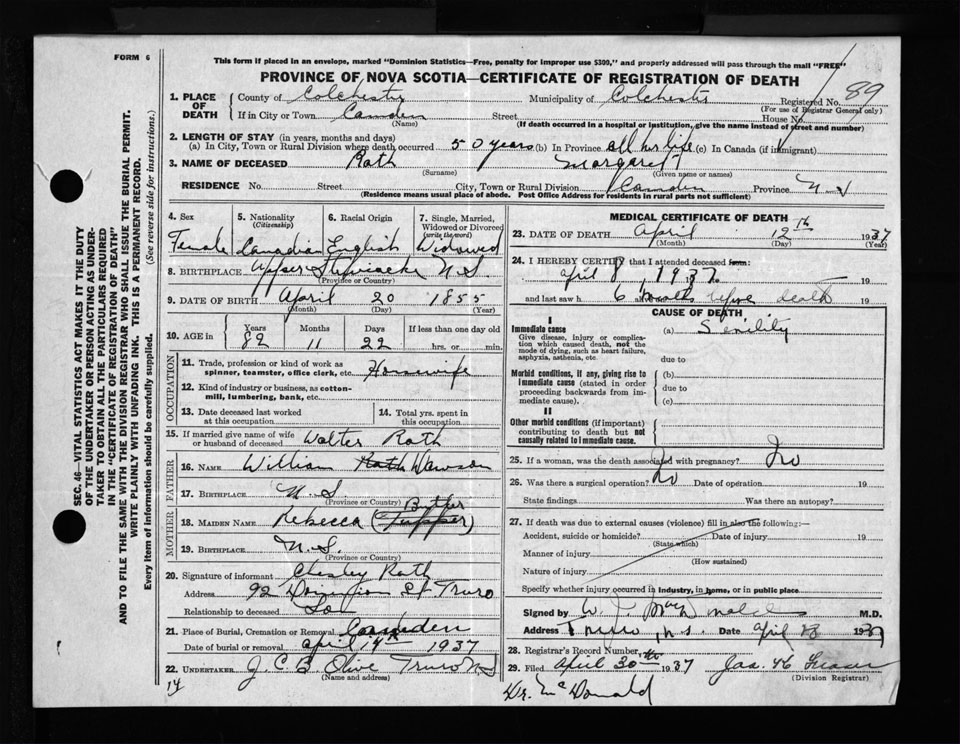 FORM 6
This form if placed in an envelope, marked "Dominion Statistics—Free, penalty for improper use $300," and properly addressed will pass through the mail "FREE"
PROVINCE OF NOVA SCOTIA—CERTIFICATE OF REGISTRATION OF DEATH
SEC. 46—VITAL STATISTICS ACT MAKES IT THE DUTY
OF THE UNDERTAKER OR PERSON ACTING AS UNDER-
TAKER TO OBTAIN ALL THE PARTICULARS REQUIRED
IN THE "CERTIFICATE OF REGISTRATION OF DEATH"
AND TO FILE THE SAME WITH THE DIVISION REGISTRAR WHO SHALL ISSUE THE BURIAL PERMIT.
WRITE PLAINLY WITH UNFADING INK. THIS IS A PERMANENT RECORD.
Every item of information should be carefully supplied. (See reverse side for instructions.)
1. PLACE OF DEATH
County of Colchester Municipality of Colchester Registered No. 89
(For use of Registrar General only)
If in City or Town Camden Street House No.
(Name) (If death occurred in a hospital or institution, give the name instead of street and number)
2. LENGTH OF STAY (in years, months and days)
(a) In City, Town or Rural Division where death occurred 50 years (b) In Province all her life (c) In Canada (if immigrant)
3. NAME OF DECEASED Rath Margaret
(Surname) (Given name or names)
RESIDENCE No. Street City, Town or Rural Division Camden Province N.S
(Residence means usual place of abode. Post Office Address for residents in rural parts not sufficient)
4. Sex Female
5. Nationality (Citizenship) Canadian
6. Racial Origin English
7. Single, Married, Widowed or Divorced (write the word) Widowed
8. BIRTHPLACE Upper Stewiacke N.S.
(Province or Country)
9. DATE OF BIRTH April 20 1855
(Month) (Day) (Year)
10. AGE in Years 82 Months 11 Days 22 If less than one day old
hrs. or min.
OCCUPATION
11. Trade, profession or kind of work as spinner, teamster, office clerk, etc. Housewife
12. Kind of industry or business, as cotton-mill, lumbering, bank, etc.
13. Date deceased last worked at this occupation
14. Total yrs. spent in this occupation
15. If married give name of wife or husband of deceased Walter Rath
FATHER
16. NAME William Rath Dawson
17. BIRTHPLACE N.S.
(Province or Country)
MOTHER
18. MAIDEN NAME Rebecca (Tupper)
19. BIRTHPLACE N.S.
(Province or Country)
20. Signature of informant Chesley Rath
Address 92 Dominion St Truro
Relationship to deceased Son
21. Place of Burial, Cremation or Removal Camden
Date of burial or removal April 14th 1937
22. UNDERTAKER J.C.B. Olive Truro NS
(Name and address)
14
MEDICAL CERTIFICATE OF DEATH
23. DATE OF DEATH April 12th 1937
(Month) (Day) (Year)
24. I HEREBY CERTIFY that I attended deceased from:
April 8, 1937 19
and last saw h 6 months before death 19
CAUSE OF DEATH
I
Immediate cause (a) Senility
Give disease, injury or complication which caused death, not the mode of dying, such as heart failure, asphyxia, asthenia, etc.
due to
Morbid conditions, if any, giving rise to immediate cause (stated in order proceeding backwards from immediate cause).
(b)
due to
(c)
II
Other morbid conditions (if important) contributing to death but not causally related to immediate cause.
25. If a woman, was the death associated with pregnancy? No
26. Was there a surgical operation? No Date of operation 19
State findings Was there an autopsy?
27. If death was due to external causes (violence) fill in also the following:—
Accident, suicide or homicide? Date of injury 19
(State which)
Manner of injury
(How sustained)
Nature of injury
Specify whether injury occurred in industry, in home, or in public place
Signed by M.D.
Address Truro, N.S. Date April 1937
28. Registrar's Record Number
29. Filed April 30th 1937
(Division Registrar)
Dr. McDonald